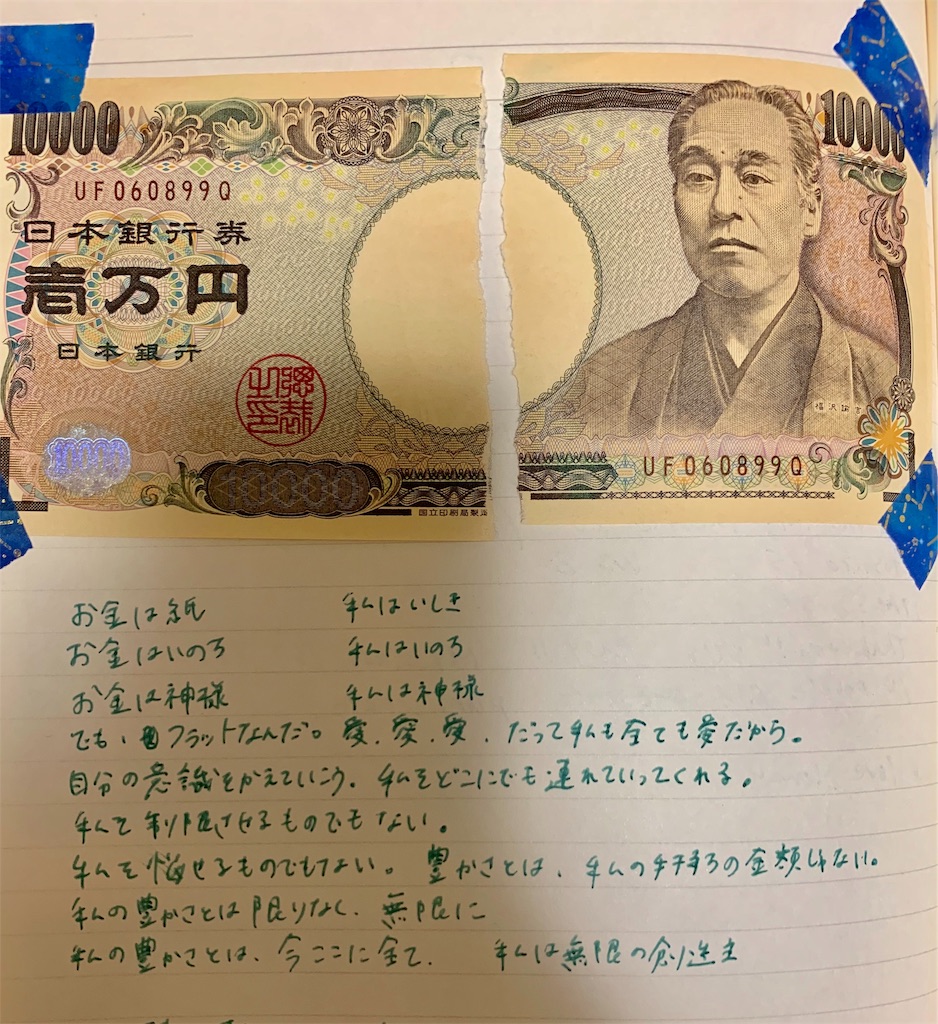 10000
10000
UF060899Q
日本銀行券
壱万円
日本銀行
10000
10000
国立印刷局製造
福沢諭吉
UF060899Q
お金は紙 私はいしき
お金はいのち 私はいのち
お金は神様 私は神様
でも、フラットなんだ。愛、愛、愛、だって私も全ても愛だから。
自分の意識をかえていこう。私をどこにでも連れていってくれる。
私を制限させるものでもない。
私を悩せるものでもない。豊かさとは、私の手持ちの金額じゃない。
私の豊かさとは限りなく、無限に
私の豊かさとは、今ここに全て、 私は無限の創造主